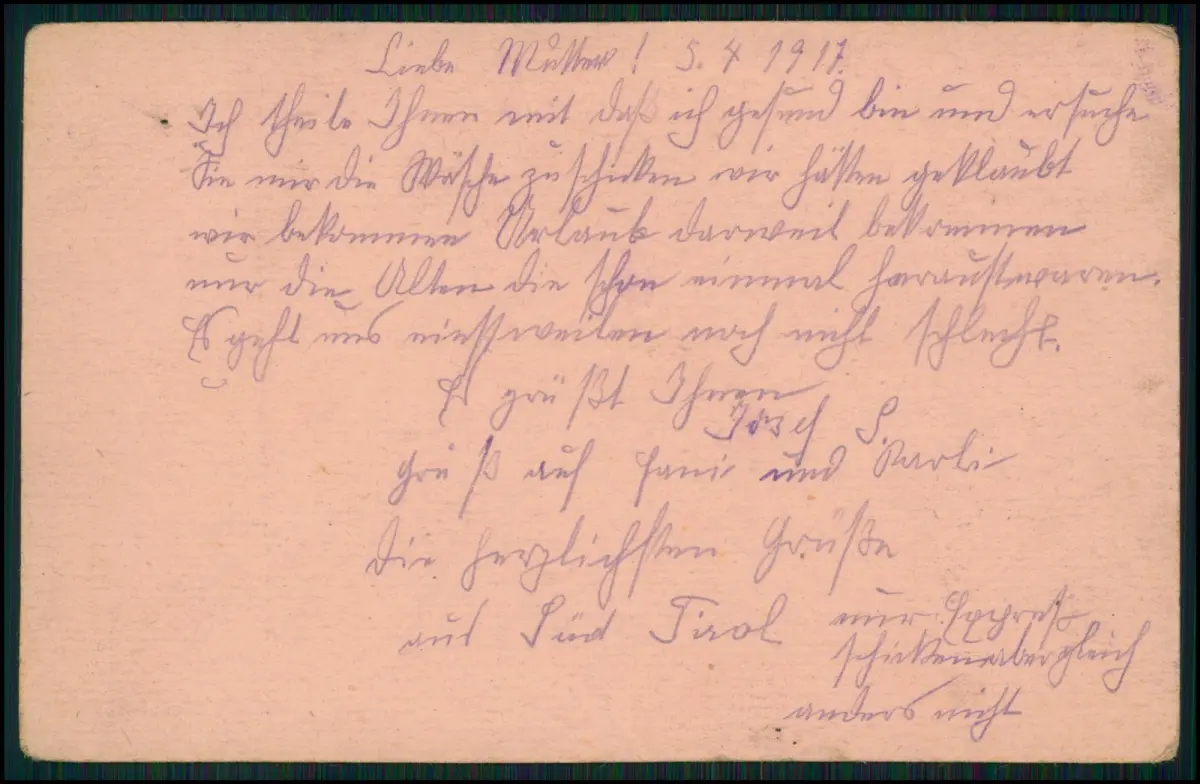 Liebe Mutter! 5. 4 1917.
Ich theile Ihnen mit daß ich gesund bin und ersuche
Sie mir die Wäsche zu schicken wir hätten geklaubt
wir bekommen Urlaub darweil bekommen
nur die Alten die schon einmal heraust waren.
Es geht uns noch nicht schlecht.
Es grüßt Ihnen
Josef S.
Gruß auf Fani und Karli
die herzlichsten Grüße
aus Süd Tirol
nur Expreß
schicken aber gleich
anders nicht